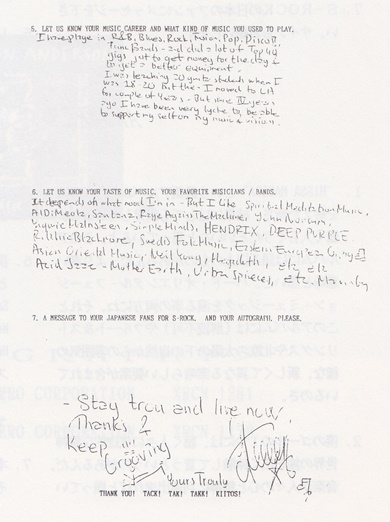 5. LET US KNOW YOUR MUSIC CAREER AND WHAT KIND OF MUSIC YOU USED TO PLAY.
I have playe in R&B, Blues, Rock, Fusion, Pop, Disco
Funk Bands - and did a lot of Top 40
gigs just to get money for the day &
to get a better equipment.
I was teaching 20 guitar students when I
was 18-20 But then I moved to LA
for couple of years - But since years
ago I have been very lucke to be able
to support my self on my music & visions.
6. LET US KNOW YOUR TASTE OF MUSIC, YOUR FAVORITE MUSICIANS / BANDS.
It depends of what mood I'm in - But I like Spiritual Meditation Music,
AlDiMeola, Santana, Rage Against The Machine,
Yngwie Malmsteen, Simple Minds, HENDRIX, DEEP PURPLE,
Ritchie Blackmore, Swedis Folk Music, Eastern European
Asian Oriental Music, Neil Young, Megadeth, etc etc
Acid Jazz - Mother Earth, Urban Species, etc.
7. A MESSAGE TO YOUR JAPANESE FANS FOR S-ROCK. AND YOUR AUTOGRAPH, PLEASE.
- Stay trou and live now!
Thanks &
Keep
Grooving
Yours Trouly
THANK YOU! TACK! TAK! TAKK! KIITOS!